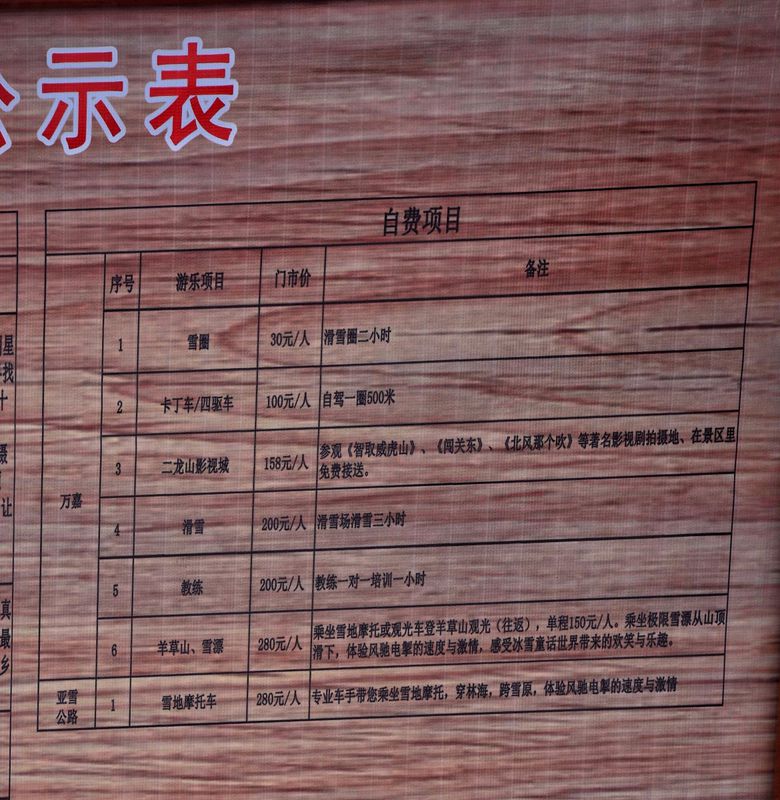 示表
星
找
十
让
真
最
乡
自费项目
序号 游乐项目 门市价 备注
万嘉
1 雪圈 30元/人 滑雪圈二小时
2 卡丁车/四驱车 100元/人 自驾一圈500米
3 二龙山影视城 158元/人 参观《智取威虎山》、《闯关东》、《北风那个吹》等著名影视剧拍摄地、在景区里
免费接送。
4 滑雪 200元/人 滑雪场滑雪三小时
5 教练 200元/人 教练一对一培训一小时
6 羊草山、雪漂 280元/人 乘坐雪地摩托或观光车登羊草山观光（往返），单程150元/人。乘坐极限雪漂从山顶
滑下，体验风驰电掣的速度与激情，感受冰雪童话世界带来的欢笑与乐趣。
亚雪
公路
1 雪地摩托车 280元/人 专业车手带您乘坐雪地摩托，穿林海，跨雪原，体验风驰电掣的速度与激情